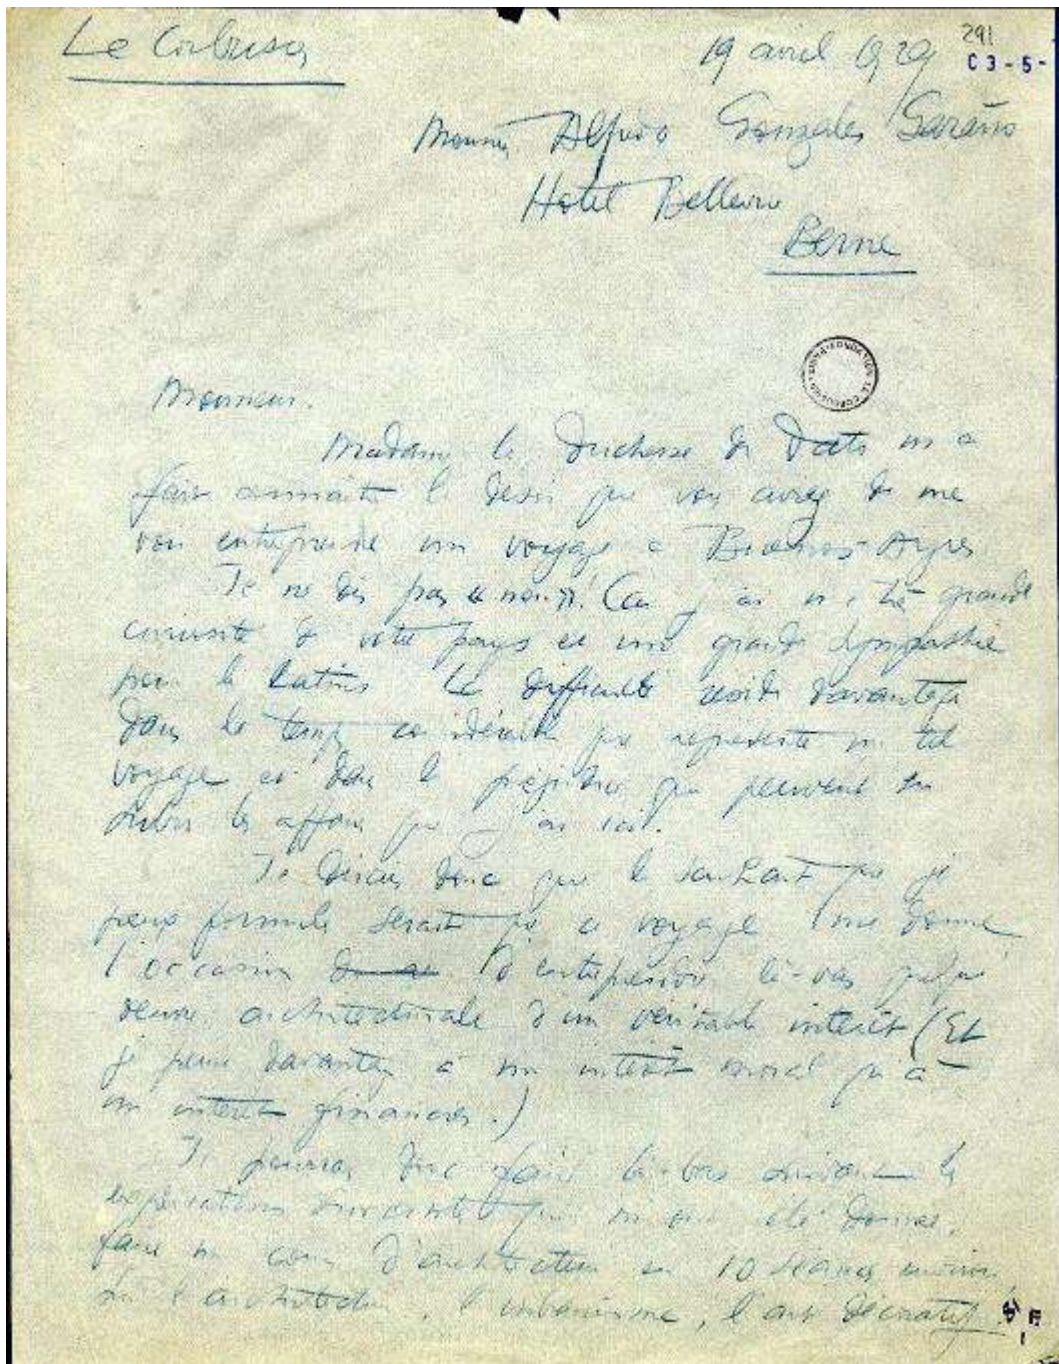 Le Corbusier
19 avril 1929
291
C3-5-
Monsieur Alfredo Gonzales Garaño
Hotel Bellevue
Berne
FONDATION LE CORBUSIER
Monsieur.
Madame la Duchesse de Dato m'a
fait connaître le désir que vous auriez de me
voir entreprendre un voyage à Buenos-Ayres
Je ne dis pas « non »! Car j'ai une très grande
curiosité de votre pays et une grande sympathie
pour les Latins. La difficulté réside davantage
dans le temps considérable que représente un tel
voyage et dans le préjudice que peuvent en
subir les affaires que j'ai ici.
Je dirais donc que le souhait que je
peux formuler serait que ce voyage me donne
l'occasion d'entreprendre là-bas quelque
oeuvre architecturale d'un véritable intérêt (Et
je pense davantage à un intérêt moral qu'à
un intérêt financier.)
Je pourrais donc faire là-bas suivant les
explications qui m'ont été données,
faire un cours d'architecture en 10 séances environ
sur l'architecture, l'urbanisme, l'art décoratif.